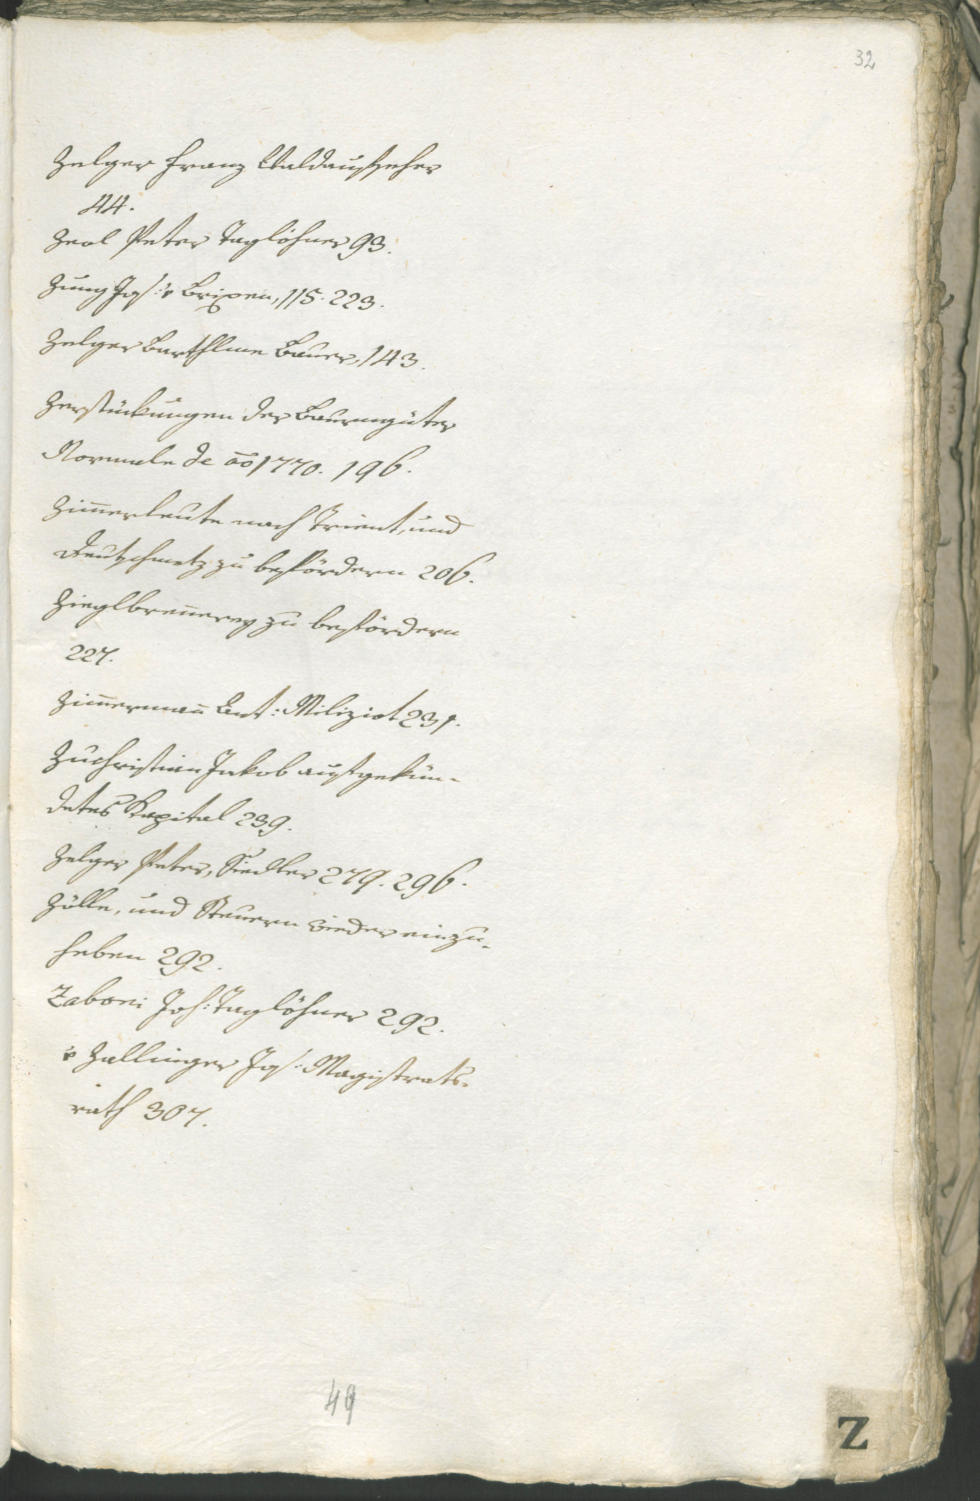 32
Zelger Franz Waldaufseher
44.
Zeol Peter Taglöhner 93.
Zung Jos: v Brixen, 115. 223.
Zelger Barthlme Bauer, 143.
Zerstückungen der Bauerngüter
Normale de ao 1770. 196.
Zimerleute nach Trient, und
Deutschmetz zu befördern 206.
Zieglbrennerey zu befördern
227.
Zimermann Ant: Miliziot 231.
Zuchristian Jakob aufgekün-
detes Kapital 239.
Zelger Peter, Siedler 279. 296.
Zölle, und Steuern wieder einzu-
heben 292.
Zaboni Joh: Taglöhner 292.
v Zallinger Jos: Magistrats-
rath 307.
49
Z